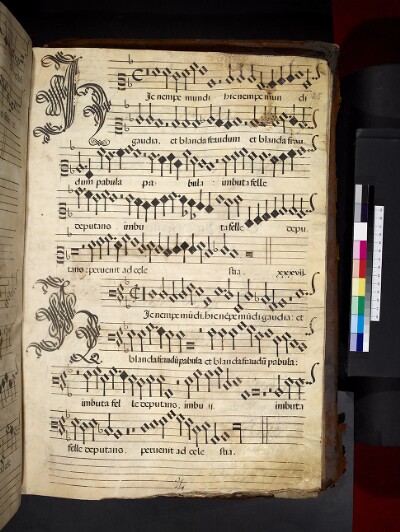 Ic nempe mundi hic nempe mun di
gaudia. et blanda fraudum et blanda frau
dum pabula pa bula imbuta felle
deputano imbu ta felle depu
tano: peruenit ad cele stia. xxxvij.
Ic nempe mūdi. hic nēpe mūdi gaudia: et
blanda fraudū pabula et blanda fraudū pabula:
imbuta fel le deputano. imbu ij. imbuta
felle deputano. peruenit ad cele stia.